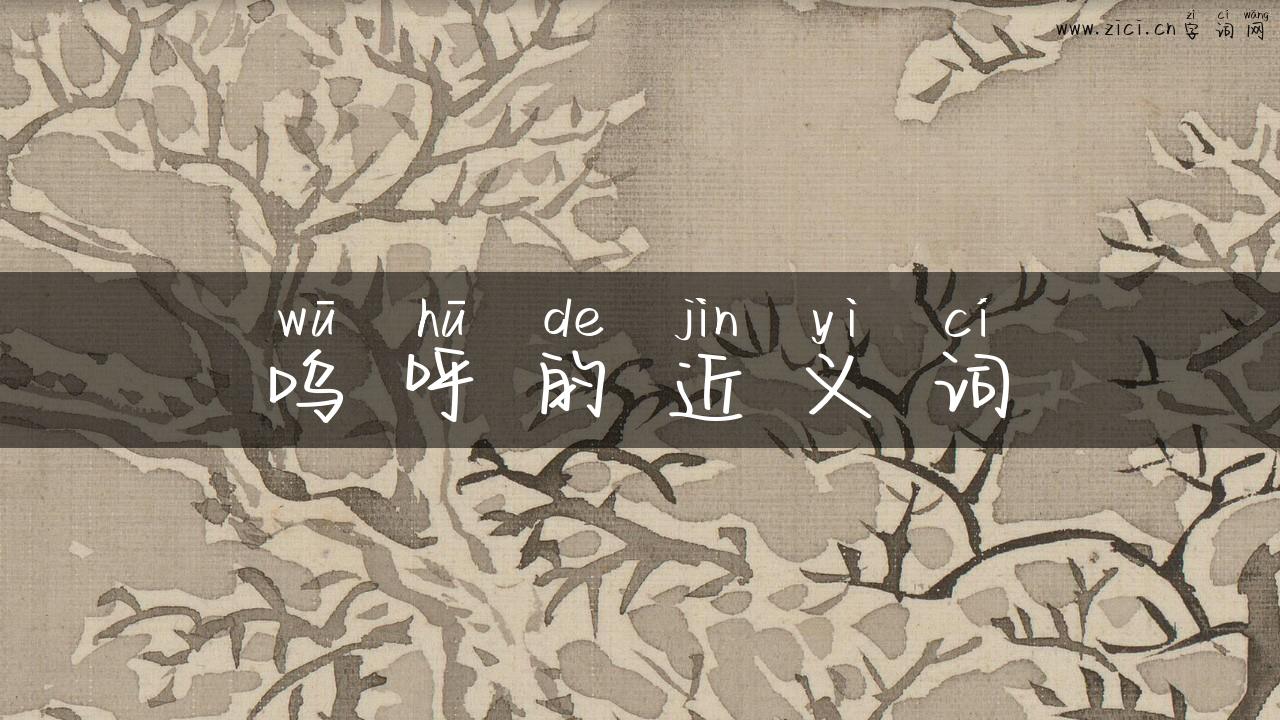 zì cí wǎng
www.zici.cn字词网
wū hū de jìn yì cí
呜呼的近义词